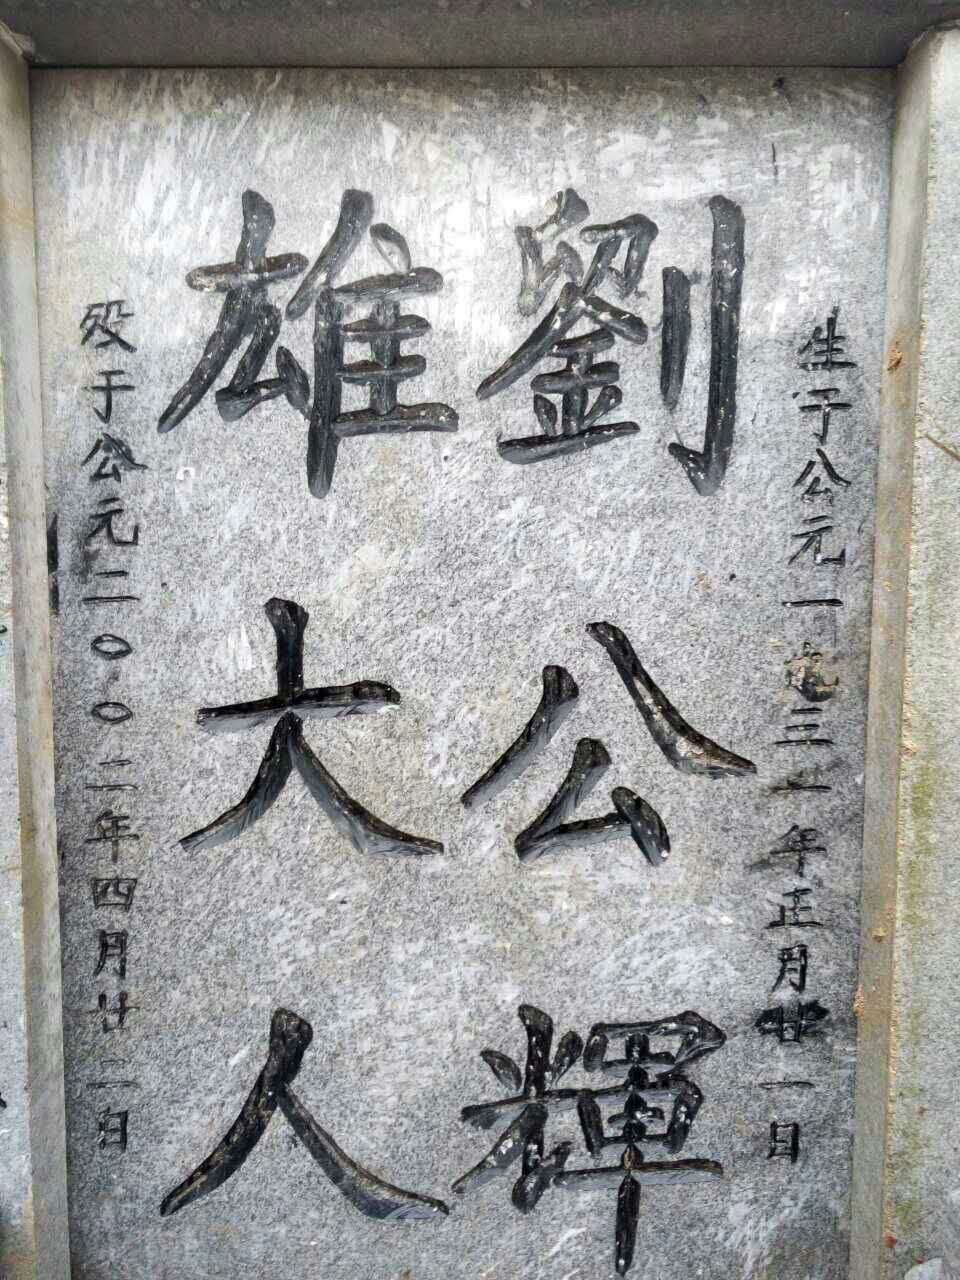 生于公元一九三一年正月廿一日
劉公輝
雄大人
殁于公元二〇〇二年四月廿二日